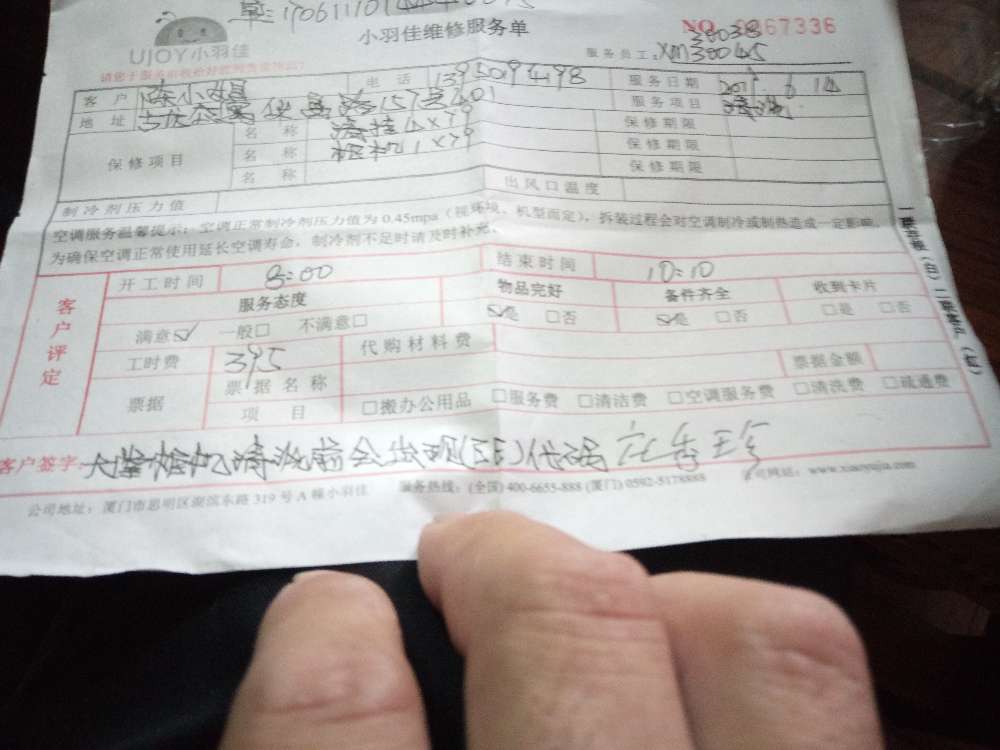 UJOY小羽佳
小羽佳维修服务单
NO 67336
服务员工: XM38045
38038
客户 陈小姐 电话 服务日期 2017.6.14
地址 157号401 服务项目 清洗
保修项目 名称 挂4×79 保修期限
名称 柜机1×79 保修期限
名称 保修期限
制冷剂压力值 出风口温度
空调服务温馨提示:空调正常制冷剂压力值为0.45mpa(视环境、机型而定),拆装过程会对空调制冷或制热造成一定影响,
为确保空调正常使用延长空调寿命,制冷剂不足时请及时补充。
客户评定
开工时间 8:00 结束时间 10:10
服务态度 物品完好 备件齐全 收到卡片
满意☑ 一般□ 不满意□ ☑是 □否 ☑是 □否 □是 □否
工时费 395 代购材料费
票据 票据名称 票据金额
项目 □搬办公用品 □服务费 □清洁费 □空调服务费 □清洗费 □疏通费
客户签字: 大堂柜机清洗前会出现(EE)代码
公司地址:厦门市思明区湖滨东路319号A幢小羽佳 服务热线:(全国)400-6655-888 (厦门)0592-5178888 公司网站:www.xiaoyujia.com
一联存根(白)二联客户(红)